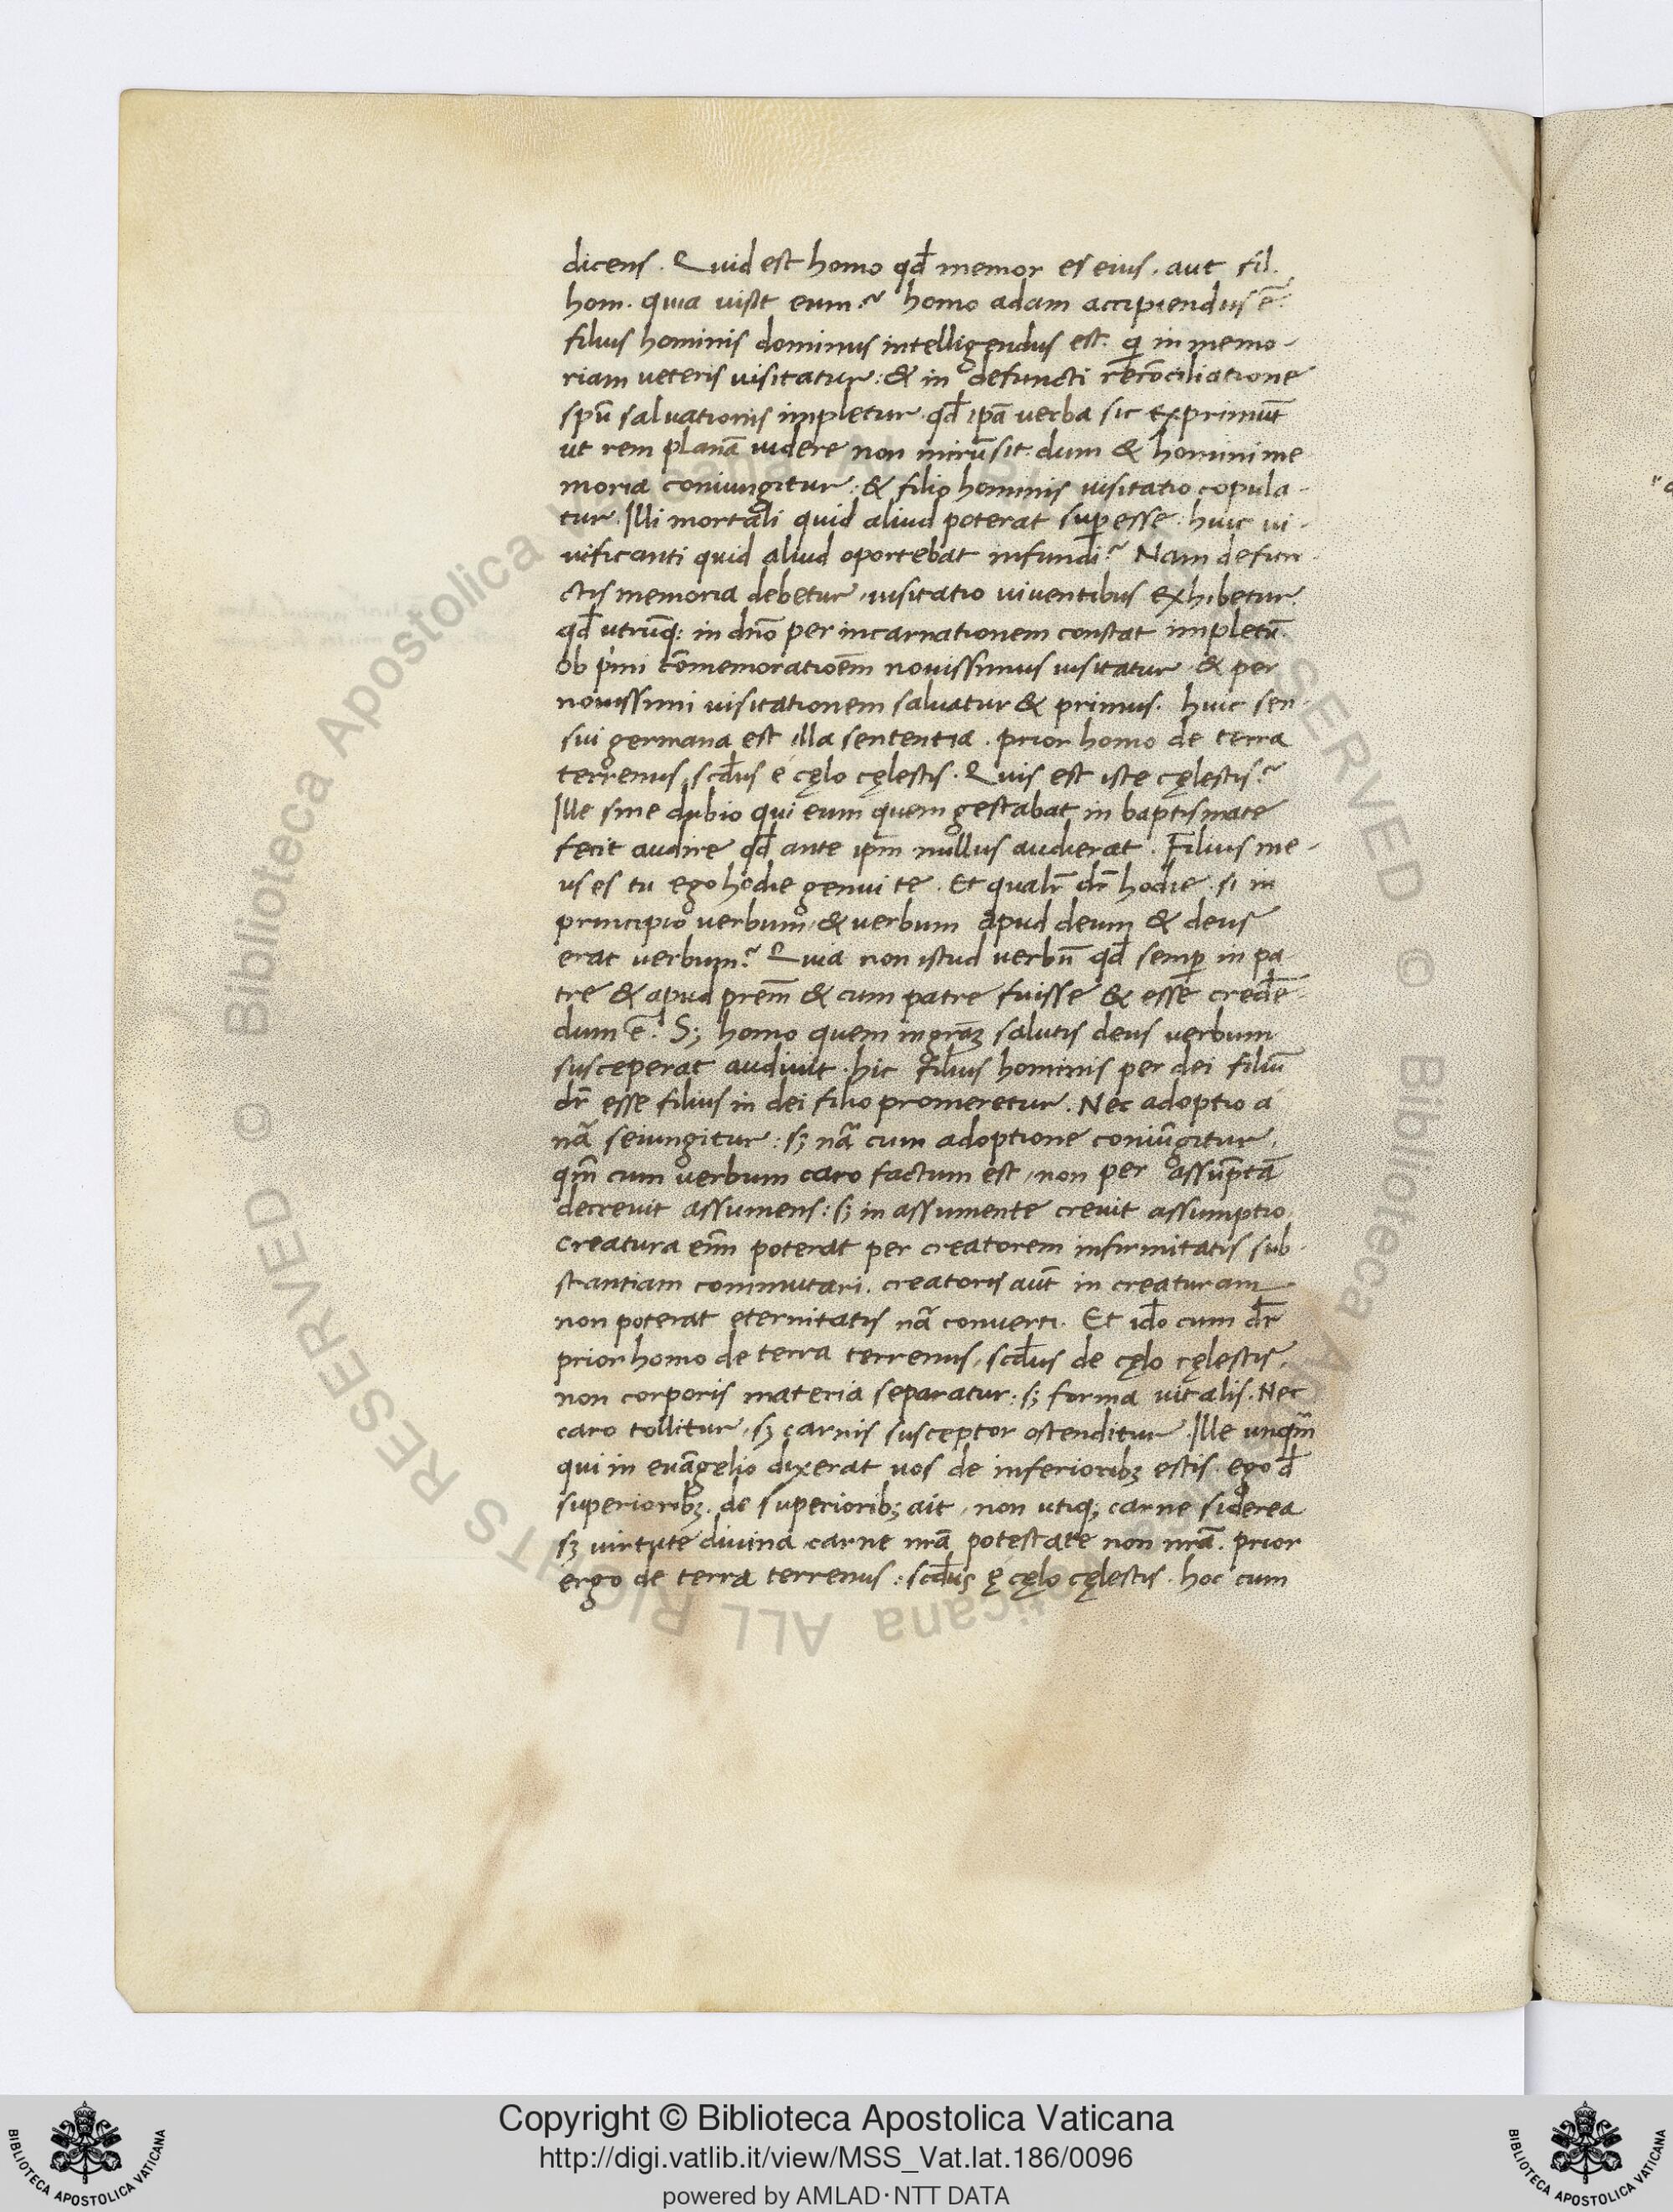 dicens. Quid est homo qđ memor es eius. aut fil.
hom. quia uisit eum? homo adam accipiendus ē.
filius hominis dominus intelligendus est. qi in memo-
riam ueteris uisitatur: & in defuncti recōciliatione
spū saluationis impletur. qđ ipā uerba sic exprimūt
ut rem planā uidere non sit. dum & homini me
moria coniungitur: & filio hominis uisitatio copula-
tur. Illi mortali quid aliud poterat superesse. huic ui-
uificanti quid aliud oportebat infundi? Nam defun-
ctis memoria debetur, uisitatio uiuentibus exhibetur.
qđ utrūq; in dño per incarnationem constat impletū.
ob p̄mi cōmemoratioēm nouissimus uisitatur & per
nouissimi uisitationem saluatur & primus. huic sen-
sui germana est illa sententia. prior homo de terra
terrenus, scđus e cęlo cęlestis. Quis est iste cęlestis?
Ille sine dubio qui eum quem gestabat in baptismate
fecit audire qđ ante ipm̄ nullus audierat. Filius me-
us es tu ego hodie genui te. Et qualr̄ dr̄ hodie. si in
principio uerbum, & uerbum apud deum & deus
erat uerbum? Quia non istud uerbū qđ semp̄ in pa
tre & apud prem̄ & cum patre fuisse & esse credē-
dum ē. Sȝ homo quem in salutis deus uerbum
susceperat audiuit. hic filius hominis per dei filiū
dr̄ esse filius in dei filio promeretur. Nec adoptio a
nā seiungitur: sȝ nā cum adoptione coniūgitur,
qm̄ cum uerbum caro factum est, non per assūptā
decreuit assumens: sȝ in assumente creuit assumptio.
creatura enī poterat per creatorem infirmitatis sub-
stantiam commutari. creatoris aūt in creaturam
non poterat eternitatis nā conuerti. Et iđo cum dr̄
prior homo de terra terrenus, scđus de cęlo cęlestis,
non corporis materia separatur: sȝ forma uitalis. Nec
caro tollitur, sȝ carnis susceptor ostenditur. Ille unqm̄
qui in euāgelio dixerat uos de inferioribȝ estis. ego đ
superioribȝ. de superioribȝ ait, non utiqȝ carne siderea
sȝ uirtute diuina carne nrā potestate non nrā. prior
ergo de terra terrenus: scđus ę cęlo cęlestis. hoc cum
© Biblioteca Apostolica Vaticana ALL RIGHTS RESERVED © Biblioteca Apostolica Vaticana ALL RIGHTS RESERVED
Copyright © Biblioteca Apostolica Vaticana
http://digi.vatlib.it/view/MSS_Vat.lat.186/0096
powered by AMLAD·NTT DATA
BIBLIOTECA APOSTOLICA VATICANA
BIBLIOTECA APOSTOLICA VATICANA